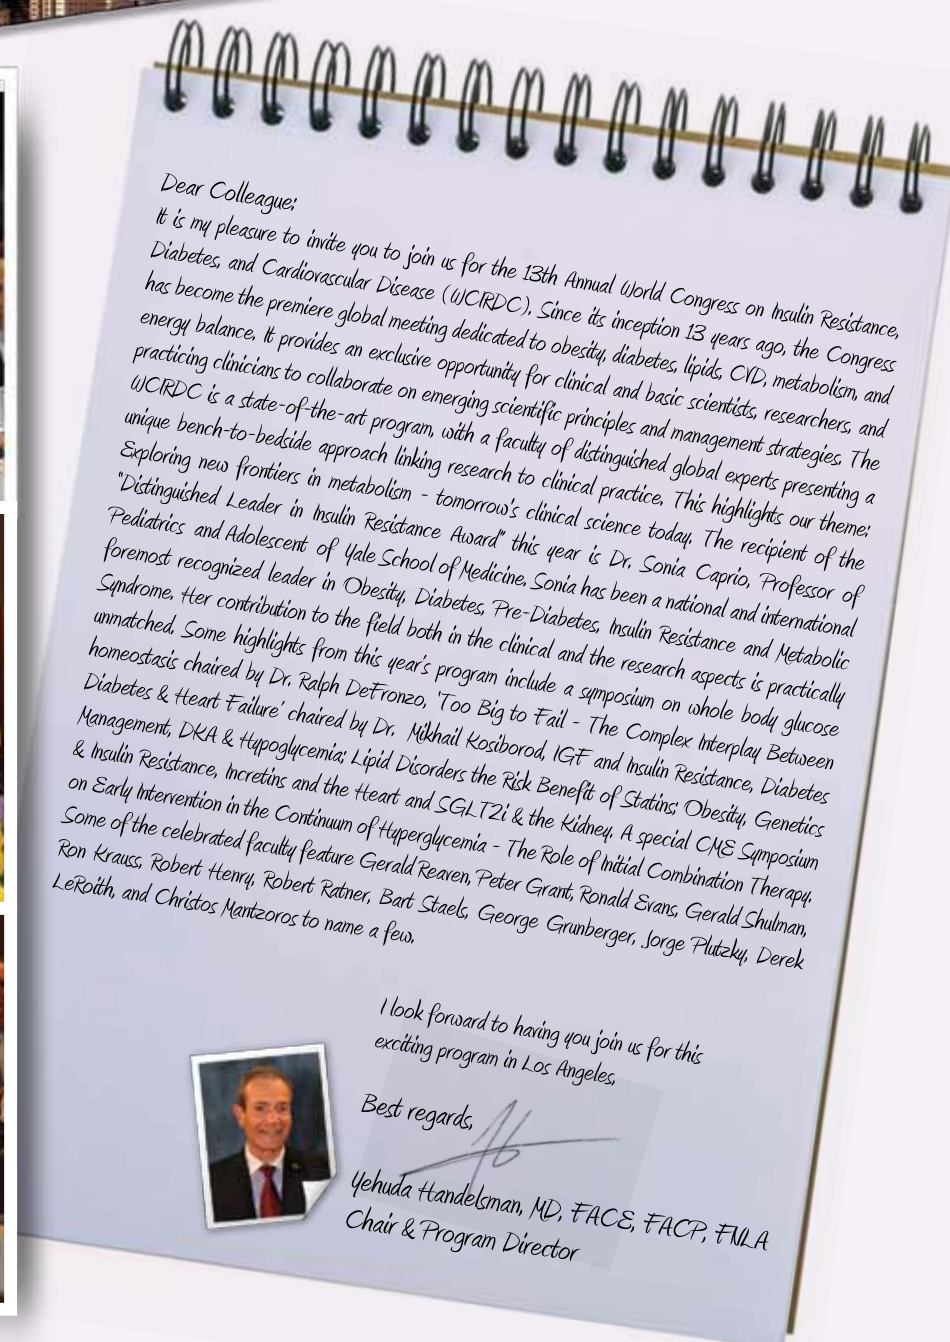 Dear Colleague:
It is my pleasure to invite you to join us for the 13th Annual World Congress on Insulin Resistance,
Diabetes, and Cardiovascular Disease (WCIRDC). Since its inception 13 years ago, the Congress
has become the premiere global meeting dedicated to obesity, diabetes, lipids, CVD, metabolism, and
energy balance. It provides an exclusive opportunity for clinical and basic scientists, researchers, and
practicing clinicians to collaborate on emerging scientific principles and management strategies. The
WCIRDC is a state-of-the-art program, with a faculty of distinguished global experts presenting a
unique bench-to-bedside approach linking research to clinical practice. This highlights our theme:
Exploring new frontiers in metabolism - tomorrow's clinical science today. The recipient of the
"Distinguished Leader in Insulin Resistance Award" this year is Dr. Sonia Caprio, Professor of
Pediatrics and Adolescent of Yale School of Medicine. Sonia has been a national and international
foremost recognized leader in Obesity, Diabetes, Pre-Diabetes, Insulin Resistance and Metabolic
Syndrome. Her contribution to the field both in the clinical and the research aspects is practically
unmatched. Some highlights from this year's program include a symposium on whole body glucose
homeostasis chaired by Dr. Ralph DeFronzo, 'Too Big to Fail - The Complex Interplay Between
Diabetes & Heart Failure' chaired by Dr. Mikhail Kosiborod, IGF and Insulin Resistance, Diabetes
Management, DKA & Hypoglycemia; Lipid Disorders the Risk Benefit of Statins; Obesity, Genetics
& Insulin Resistance, Incretins and the Heart and SGLT2i & the Kidney. A special CME Symposium
on Early Intervention in the Continuum of Hyperglycemia - The Role of Initial Combination Therapy.
Some of the celebrated faculty feature Gerald Reaven, Peter Grant, Ronald Evans, Gerald Shulman,
Ron Krauss, Robert Henry, Robert Ratner, Bart Staels, George Grunberger, Jorge Plutzky, Derek
LeRoith, and Christos Mantzoros to name a few.
I look forward to having you join us for this
exciting program in Los Angeles,
Best regards,
Yehuda Handelsman, MD, FACE, FACP, FNLA
Chair & Program Director